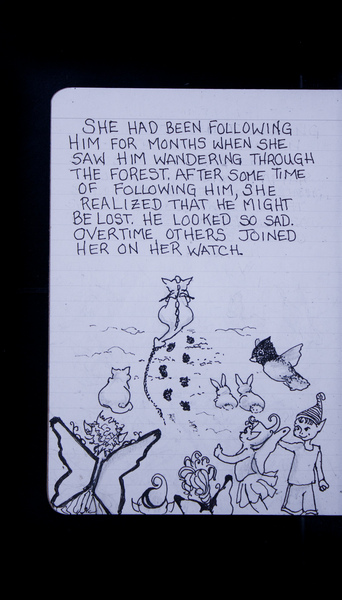 SHE HAD BEEN FOLLOWING
HIM FOR MONTHS WHEN SHE
SAW HIM WANDERING THROUGH
THE FOREST. AFTER SOME TIME
OF FOLLOWING HIM, SHE
REALIZED THAT HE MIGHT
BE LOST. HE LOOKED SO SAD.
OVERTIME OTHERS JOINED
HER ON HER WATCH.